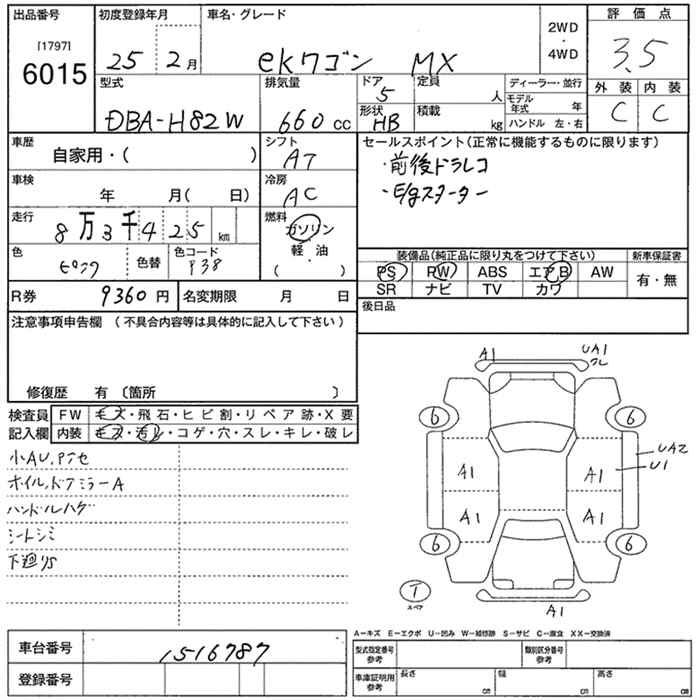 出品番号
[1797]
6015
初度登録年月
25年2月
車名・グレード
ekワゴン MX
2WD
・
4WD
評価点
3.5
外装 内装
C C
型式
DBA-H82W
排気量
660cc
ドア
5
形状
HB
定員
人
積載
kg
ディーラー・並行
モデル年式 年
ハンドル 左・右
車歴
自家用・( )
シフト
AT
セールスポイント(正常に機能するものに限ります)
・前後ドラレコ
・E/gスターター
車検
年 月( 日)
冷房
AC
走行
8万3千425km
燃料
ガソリン
軽・油
( )
色
ピンク
色替
色コード
P38
装備品(純正品に限り丸をつけて下さい)
PS PW ABS エアB AW
SR ナビ TV カワ
新車保証書
有・無
R券
9360円
名変期限 月 日
後日品
注意事項申告欄(不具合内容等は具体的に記入して下さい)
修復歴 有〔箇所 〕
検査員
記入欄
FW キズ・飛石・ヒビ割・リペア跡・X要
内装 キズ・汚レ・コゲ・穴・スレ・キレ・破レ
小AU,アセ
オイル,ドアミラーA
ハンドルハゲ
シートシミ
下廻りS
A1
UA1
6 6
A1 A1
UA2
U1
A1 A1
6 6
T
スペア
A1
車台番号
1516787
登録番号
A-キズ E-エクボ U-凹み W-補修跡 S-サビ C-腐食 XX-交換済
型式指定番号
参考
類別区分番号
参考
車庫証明用
参考
長さ cm
幅 cm
高さ cm